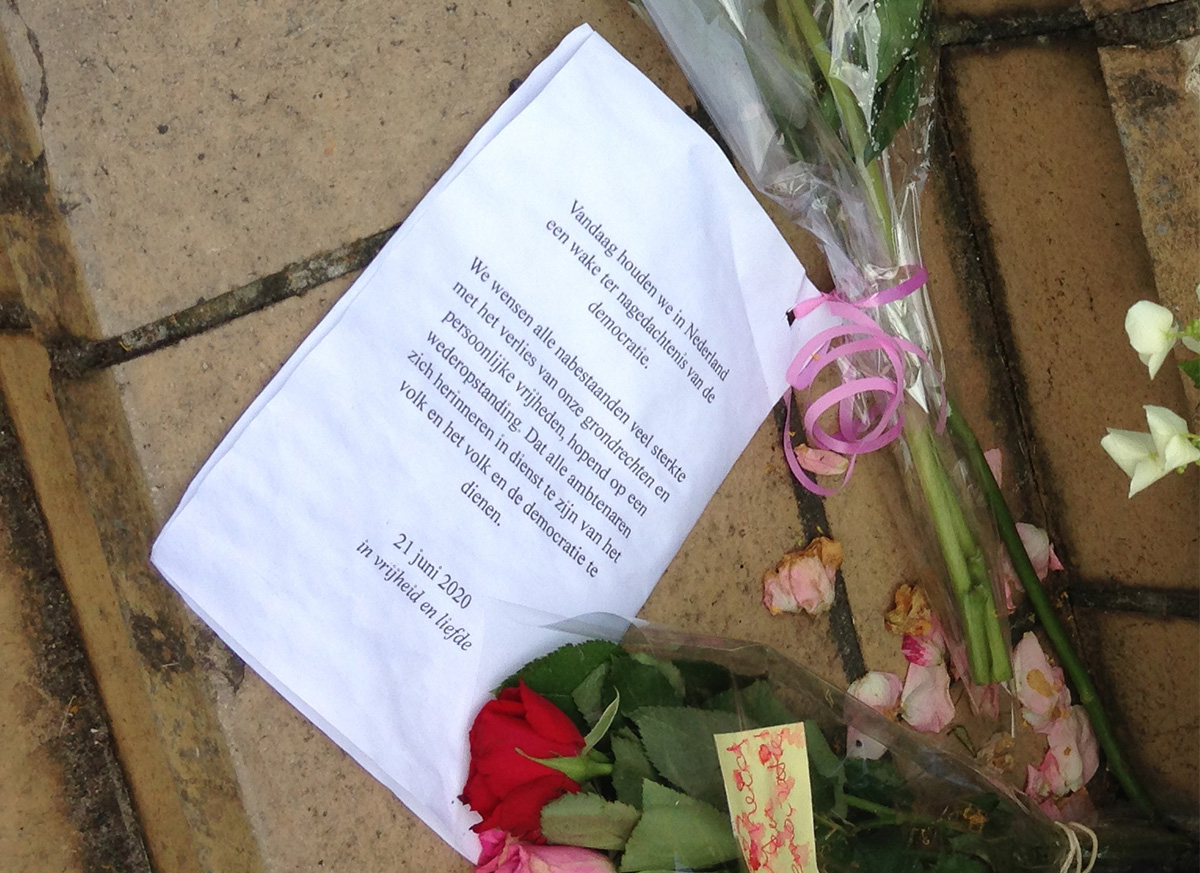 Vandaag houden we in Nederland
een wake ter nagedachtenis van de
democratie.
We wensen alle nabestaanden veel sterkte
met het verlies van onze grondrechten en
persoonlijke vrijheden, hopend op een
wederopstanding. Dat alle ambtenaren
zich herinneren in dienst te zijn van het
volk en het volk en de democratie te
dienen.
21 juni 2020
in vrijheid en liefde